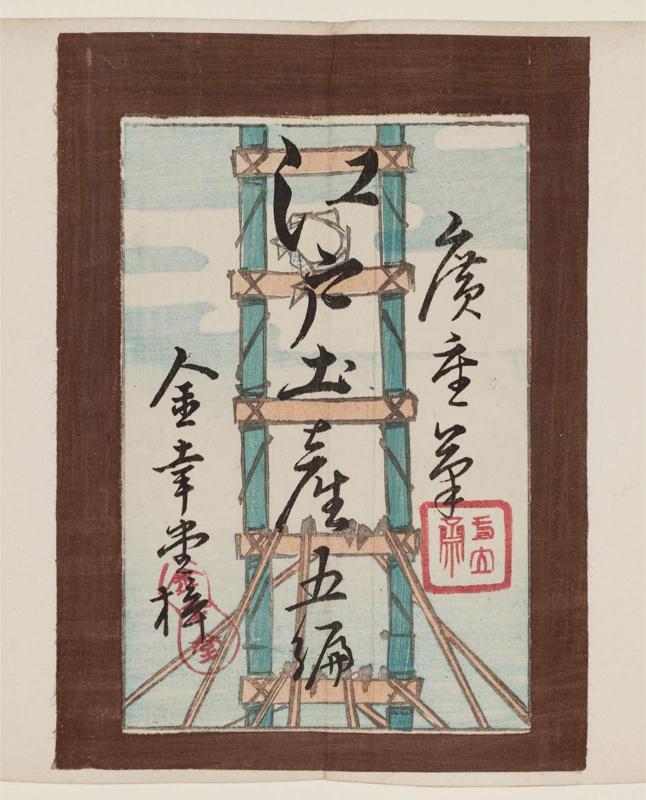 廣重筆
江戸土産五編
金幸堂梓